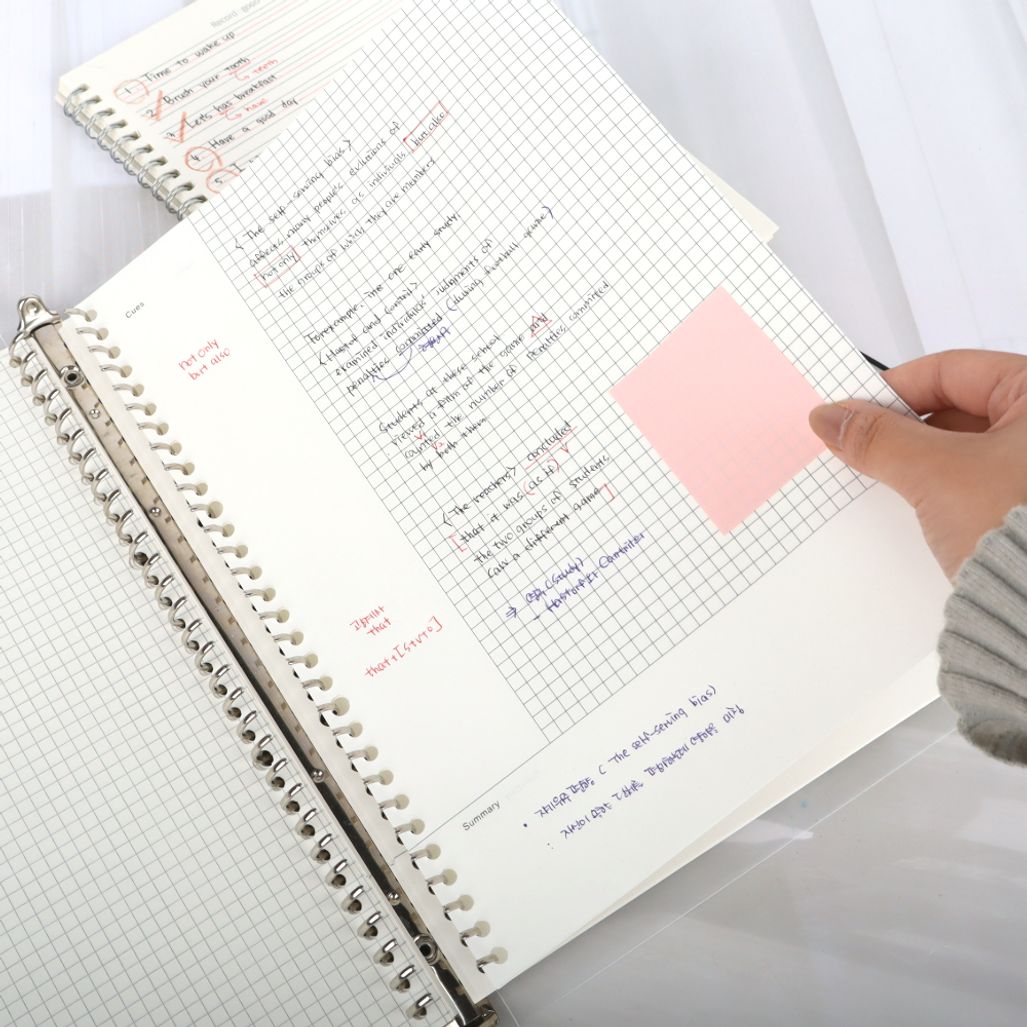 Record good
1. Time to wake up
2. Brush your tooth
teeth
3. Let's has breakfast
have
4. Have a good day
5. I
Cues
not only
but also
that
that+[S+V+O]
<The self-serving bias>
affects many people's evlutions of
[not only] themselves as indiviuals [but also]
the groups of which they are numbers
For example, ine one early study,
<Hastorf and Control>
examined individuals' judgments of
penalties commiated (during football game)
Students at these school
viewed a film of the game and
counted the number of Penalties committed
by both them
<The reachers> concluded
[that it was (as if)
the two groups of students
saw a different game]
⇒ (study)
Summary
• 자기본위 편향 ( The self-serving bias)